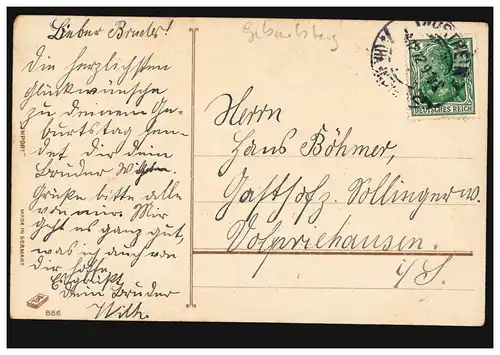 Lieber Bruder!
Die herzlichsten
Glückwünsche
zu deinem Ge-
burtstag sen-
det dir dein
Bruder Wilhelm.
Grüße bitte alle
von mir. Mir
geht es ganz gut,
was ich auch von
dir hoffe.
Es grüßt
dein Bruder
Wilh.
Geburtstag
DEUTSCHES REICH
Herrn
Hans Böhmer,
Gasthof z. Sollinger W.
Volpriehausen.
i/S.
MADE IN GERMANY
886